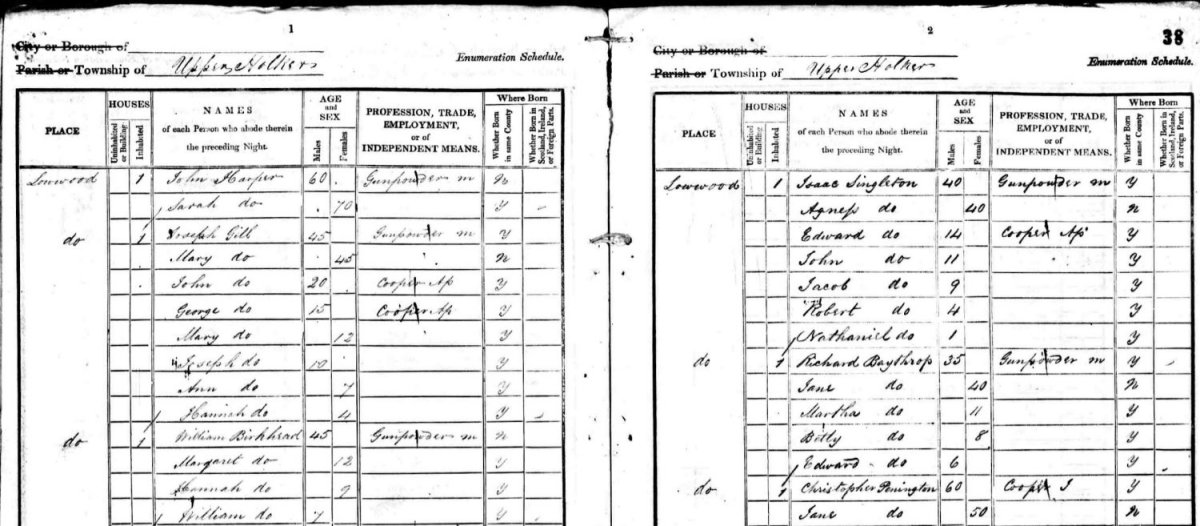 1
City or Borough of
Enumeration Schedule.
Parish or Township of Upper Holker
PLACE HOUSES NAMES of each Person who abode therein the preceding Night. AGE and SEX PROFESSION, TRADE, EMPLOYMENT, or of INDEPENDENT MEANS. Where Born
Uninhabited or Building Inhabited Males Females Whether Born in same County Whether Born in Scotland, Ireland, or Foreign Parts.
Lowwood 1 John Harper 60 Gunpowder m N
Sarah do 70 Y
do 1 Joseph Gill 45 Gunpowder m Y
Mary do 45 N
John do 20 Cooper Ap Y
George do 15 Cooper Ap Y
Mary do 12 Y
Joseph do 10 Y
Ann do 7 Y
Hannah do 4 Y
do 1 William Birkhead 45 Gunpowder m N
Margaret do 12 Y
Hannah do 9 Y
William do 7 Y
2
38
City or Borough of
Enumeration Schedule.
Parish or Township of Upper Holker
PLACE HOUSES NAMES of each Person who abode therein the preceding Night. AGE and SEX PROFESSION, TRADE, EMPLOYMENT, or of INDEPENDENT MEANS. Where Born
Uninhabited or Building Inhabited Males Females Whether Born in same County Whether Born in Scotland, Ireland, or Foreign Parts.
Lowwood 1 Isaac Singleton 40 Gunpowder m Y
Agness do 40 N
Edward do 14 Cooper Ap Y
John do 11 Y
Jacob do 9 Y
Robert do 4 Y
Nathaniel do 1 Y
do 1 Richard Baythrop 35 Gunpowder m Y
Jane do 40 N
Martha do 11 Y
Betty do 8 Y
Edward do 6 Y
do 1 Christopher Penington 60 Cooper J Y
Jane do 50 N